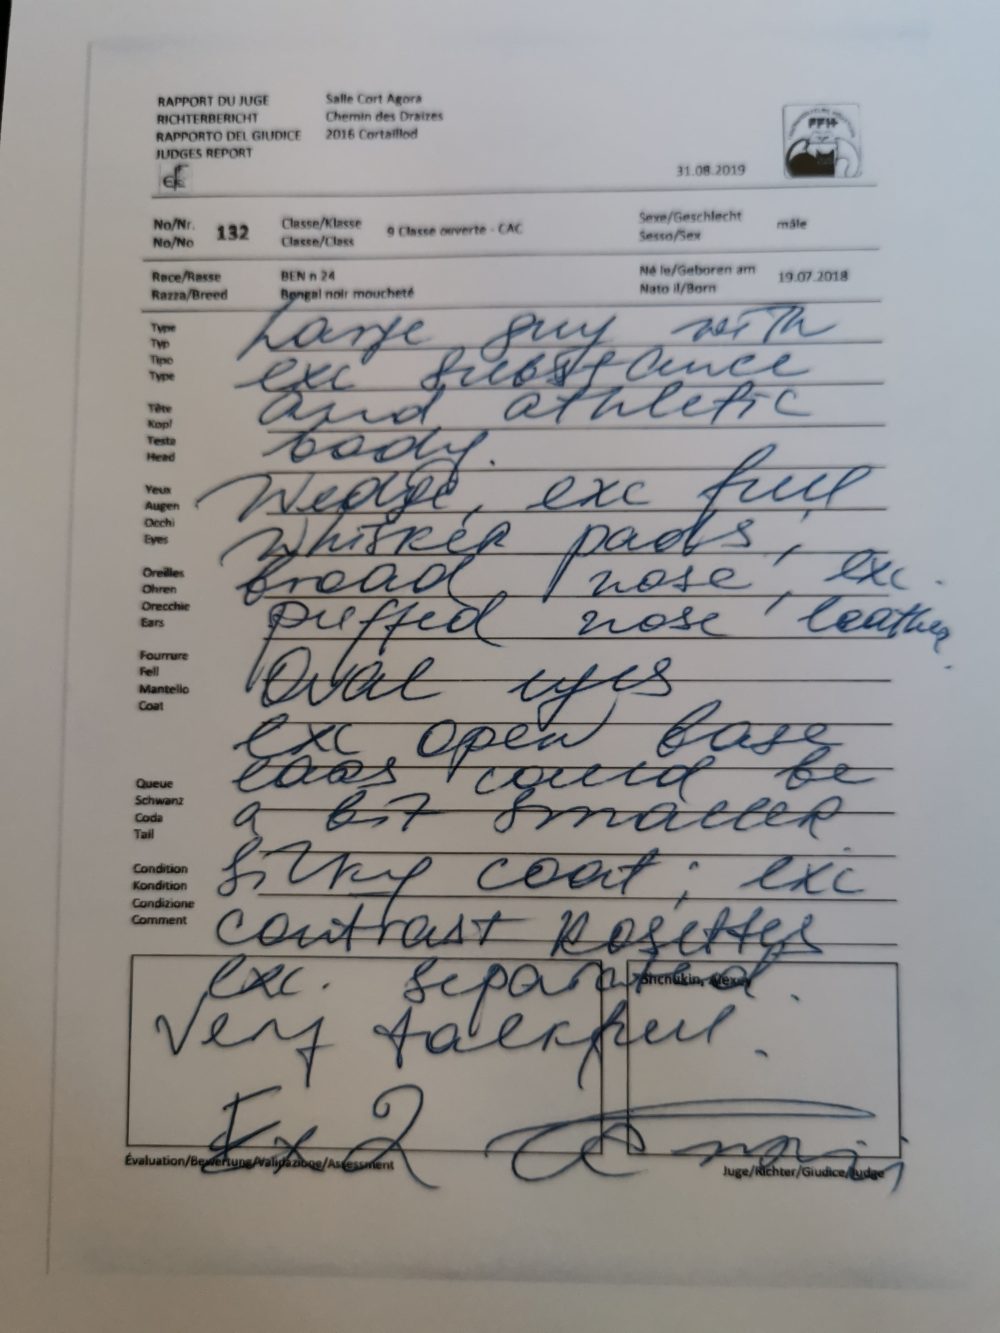 RAPPORT DU JUGE
RICHTERBERICHT
RAPPORTO DEL GIUDICE
JUDGES REPORT
Salle Cort Agora
Chemin des Draizes
2016 Cortaillod
FFH
31.08.2019
No/Nr. 132 Classe/Klasse 9 Classe ouverte - CAC Sexe/Geschlecht mâle
No/No Classe/Class Sesso/Sex
Race/Rasse BEN n 24 Né le/Geboren am 19.07.2018
Razza/Breed Bengal noir moucheté Nato il/Born
Type
Typ
Tipo
Type
Large guy with
exc substance
Tête
Kopf
Testa
Head
and athletic
body.
Yeux
Augen
Occhi
Eyes
Wedge, exc full
whisker pads,
Oreilles
Ohren
Orecchie
Ears
broad nose, exc.
puffed nose leather.
Fourrure
Fell
Mantello
Coat
Oval eyes
exc open base
Queue
Schwanz
Coda
Tail
ears could be
a bit smaller
Condition
Kondition
Condizione
Comment
Silky coat; exc
contrast Rosettes
exc. separated.
Shchukin, Alexey
Very talkful.
Ex 2
Évaluation/Bewertung/Validazione/Assessment
Juge/Richter/Giudice/Judge